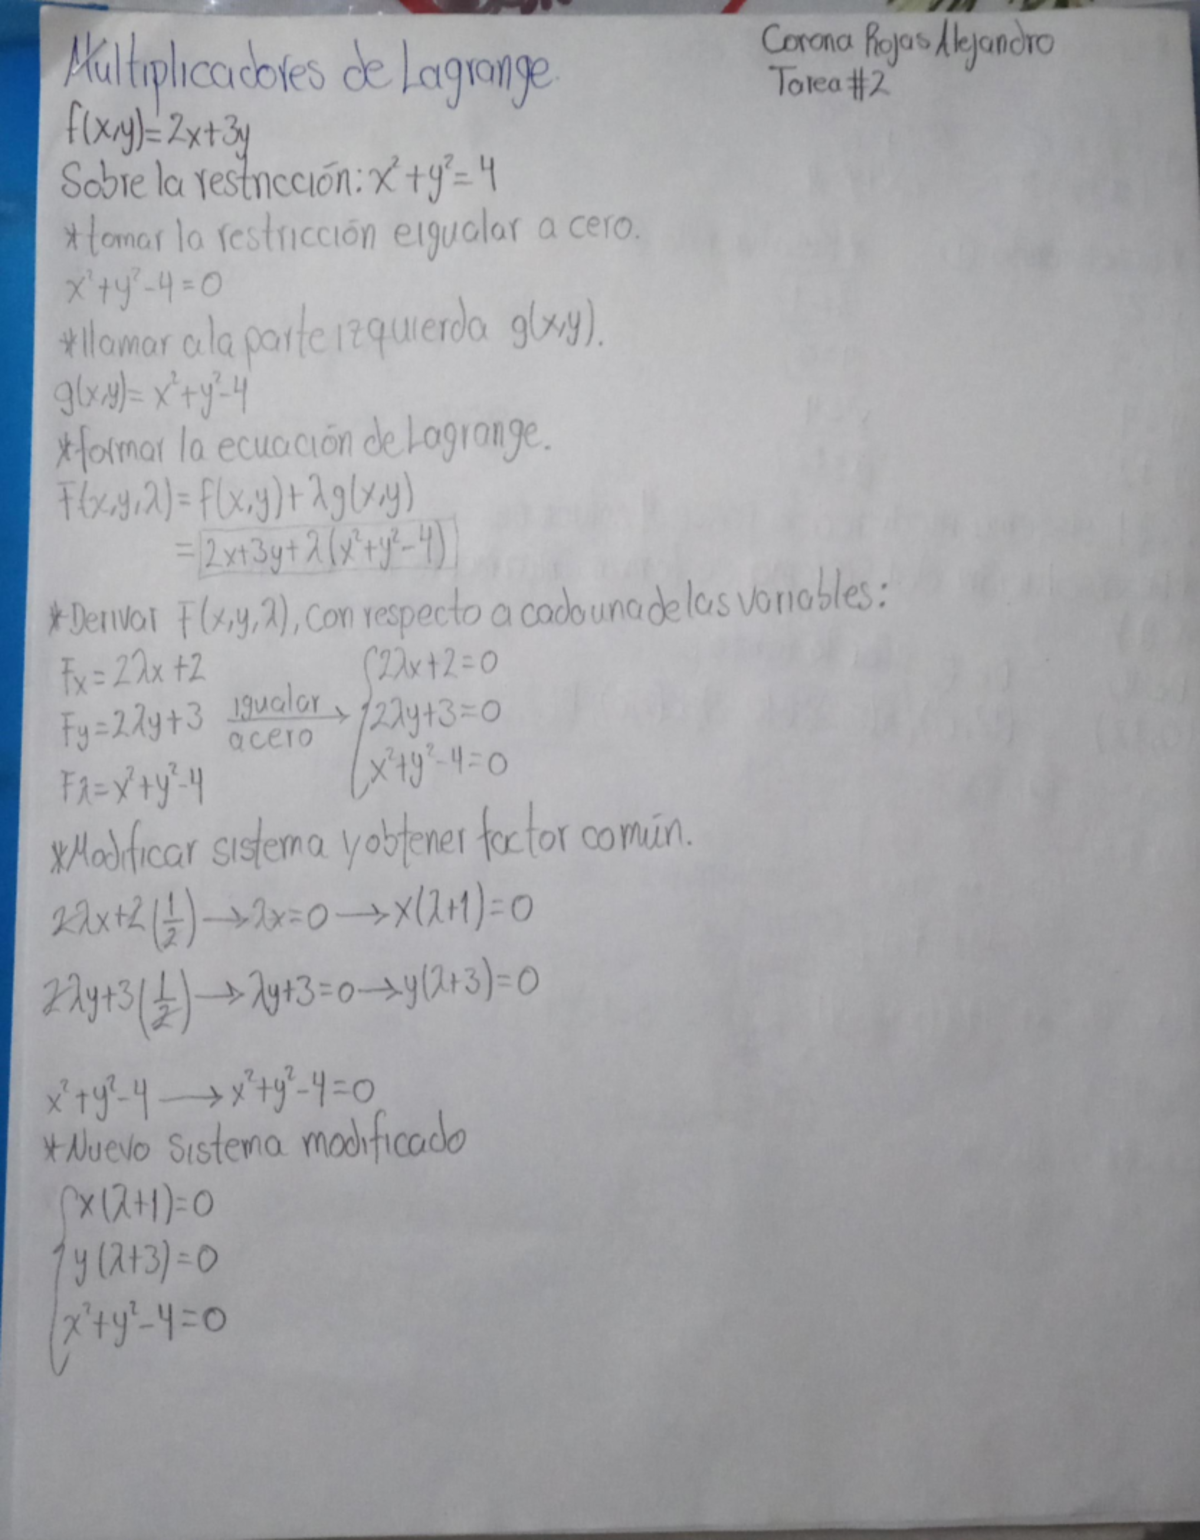 Multiplicadores de Lagrange.
Corona Rojas Alejandro
Tarea #2
f(x,y)=2x+3y
Sobre la restricción: x²+y²=4
*tomar la restricción e igualar a cero.
x²+y²-4=0
*llamar a la parte izquierda g(x,y).
g(x,y)= x²+y²-4
*formar la ecuación de Lagrange.
F(x,y,λ)= f(x,y)+λg(x,y)
= 2x+3y+λ(x²+y²-4)
*Derivar F(x,y,λ), con respecto a cada una de las variables:
Fx=2λx+2
Fy=2λy+3
Fλ=x²+y²-4
igualar
a cero
2λx+2=0
2λy+3=0
x²+y²-4=0
*Modificar sistema y obtener factor común.
2λx+2(1/2)→λx=0→x(λ+1)=0
2λy+3(1/2)→λy+3=0→y(λ+3)=0
x²+y²-4→x²+y²-4=0
*Nuevo sistema modificado
x(λ+1)=0
y(λ+3)=0
x²+y²-4=0